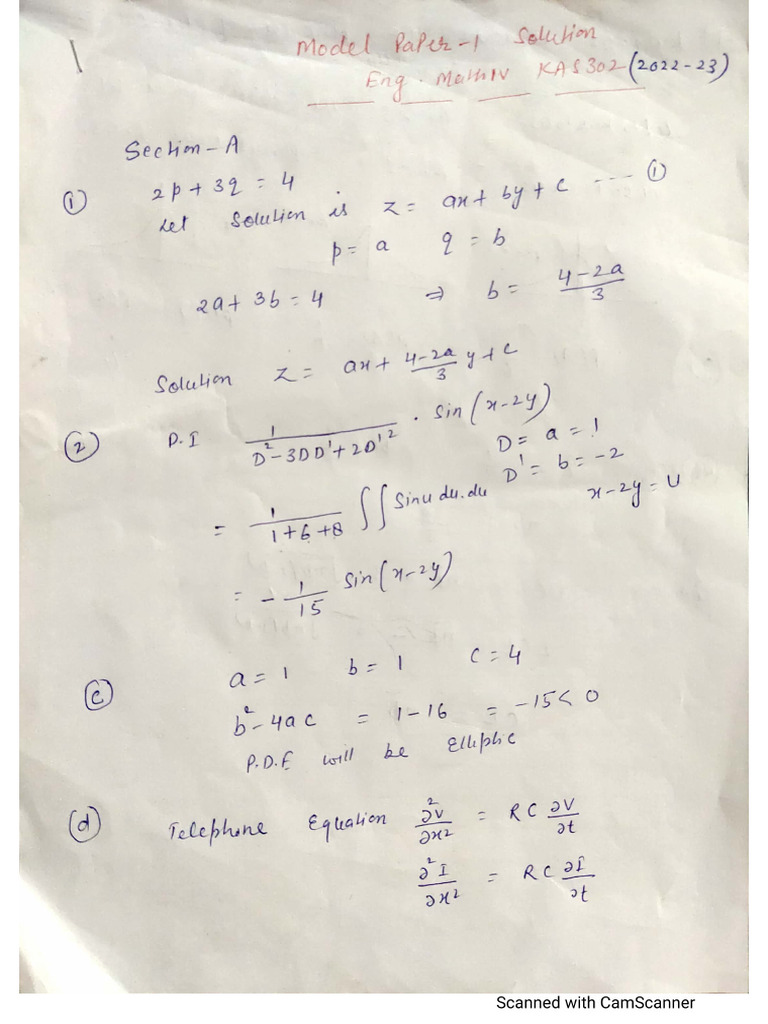 1
Model Paper-1 Solution
Eng. Math IV KAS302 (2022-23)
Section-A
① 2p + 3q = 4
Let Solution is z = ax + by + c ---- ①
p = a q = b
2a + 3b = 4 ⇒ b = (4-2a)/3
Solution z = ax + (4-2a)/3 y + c
② P.I 1/(D²-3DD'+2D'²) . Sin(x-2y)
D = a = 1
D' = b = -2
= 1/(1+6+8) ∫∫ Sinu du.du x-2y = u
= -1/15 Sin(x-2y)
ⓒ a = 1 b = 1 c = 4
b²-4ac = 1-16 = -15 < 0
P.D.E will be Elliptic
ⓓ Telephone Equation ∂²V/∂x² = RC ∂V/∂t
∂²I/∂x² = RC ∂I/∂t
Scanned with CamScanner